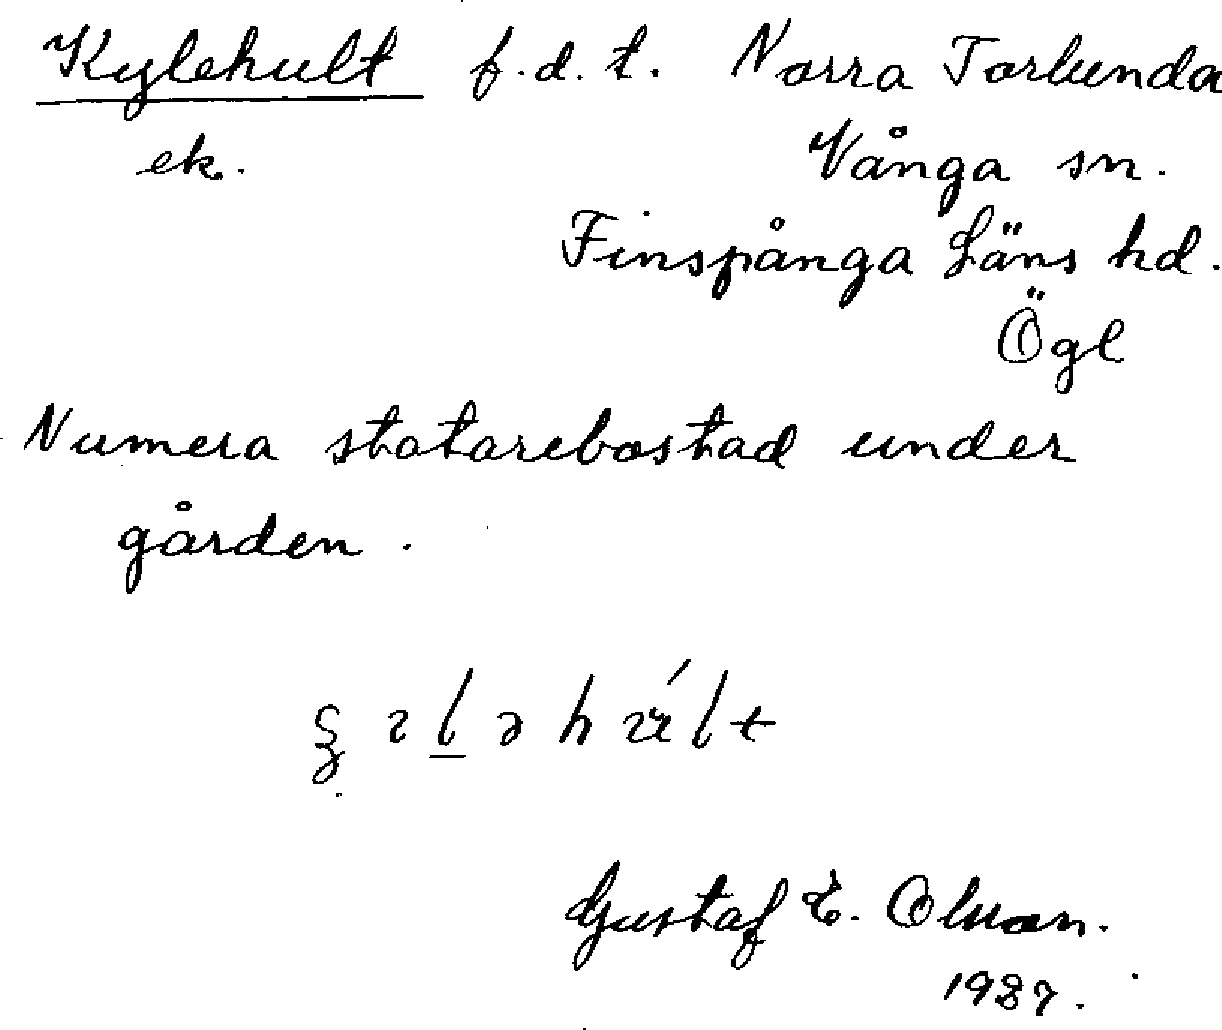 Kylehult f.d.t. Norra Torlunda
ek. Vånga sn.
Finspånga Läns hd.
Ögl
Numera statarebostad under
gården.
Gustaf E. Olsson.